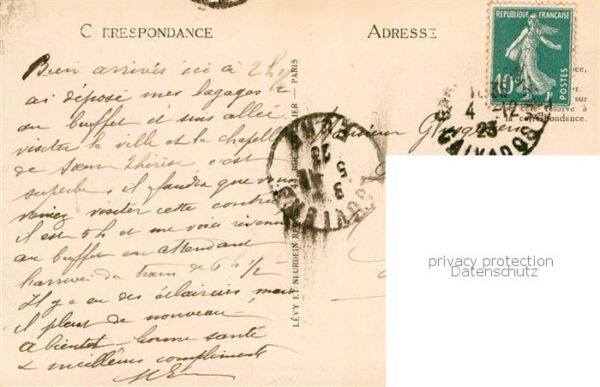 CORRESPONDANCE
ADRESSE
REPUBLIQUE FRANÇAISE
10c
POSTES
Bien arrivés ici à 2h 1/2
ai déposé mes bagages
au buffet et suis allé
visiter la ville et la chapelle
de Sœur Thérèse c'est
superbe, il faudra que vous
veniez visiter cette contrée
il est 5h et me voici revenu
au buffet en attendant
l'arrivée du train de 6h 1/2
Il y a eu des éclaircies, mais
il pleut de nouveau —
à bientôt — bonne santé
& meilleurs compliments
Monsieur
LÉVY ET NEURDEIN RÉUNIS
PARIS
CALVADOS
4 -12
23
la correspondance.
privacy protection
Datenschutz